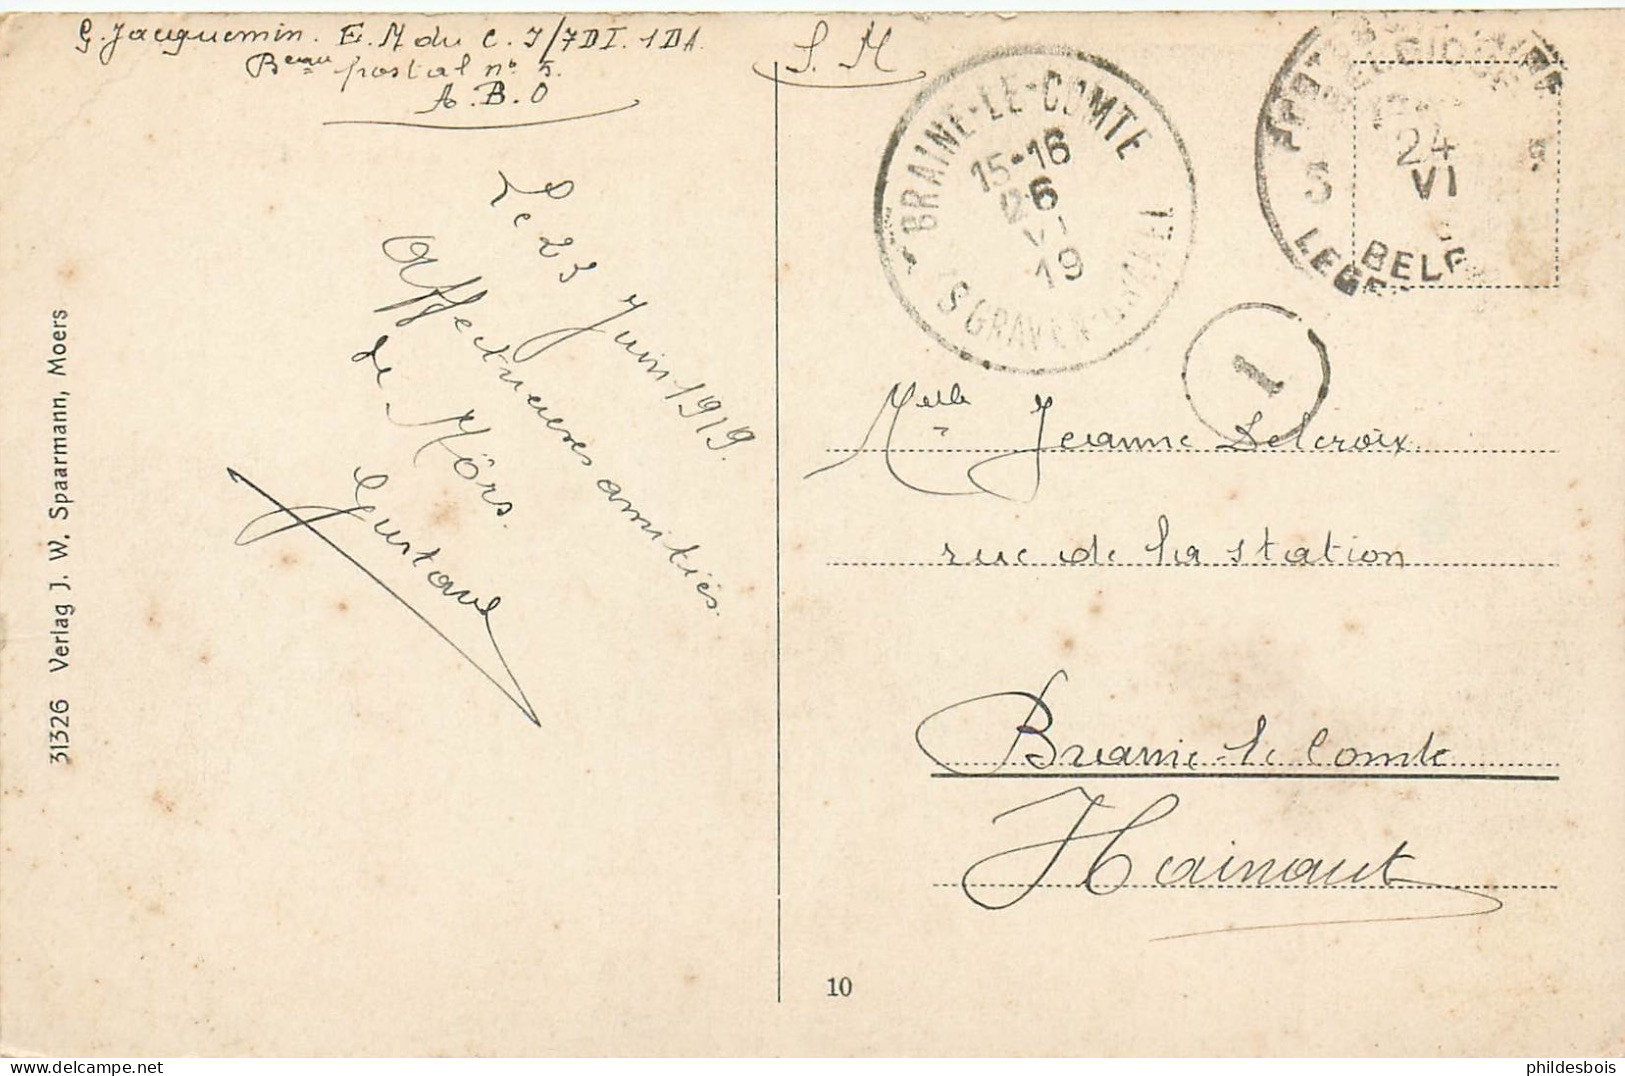 G. Jacquemin. E. M du C. I/7DI. 1DA.
Beau postal n° 5.
A.B.O
S. M
Le 23 Juin 1919.
Affectueuses amitiés
de Mörs.
Gustave
31326 Verlag J. W. Spaarmann, Moers
BRAINE-LE-COMTE
15-16
26
VI
19
'S GRAVEN-BRAKEL
5
24
VI
BELG
LEGE
1
Melle Jeanne Delcroix
rue de la station
Braine-le Comte
Hainaut
10
www.delcampe.net
phildesbois